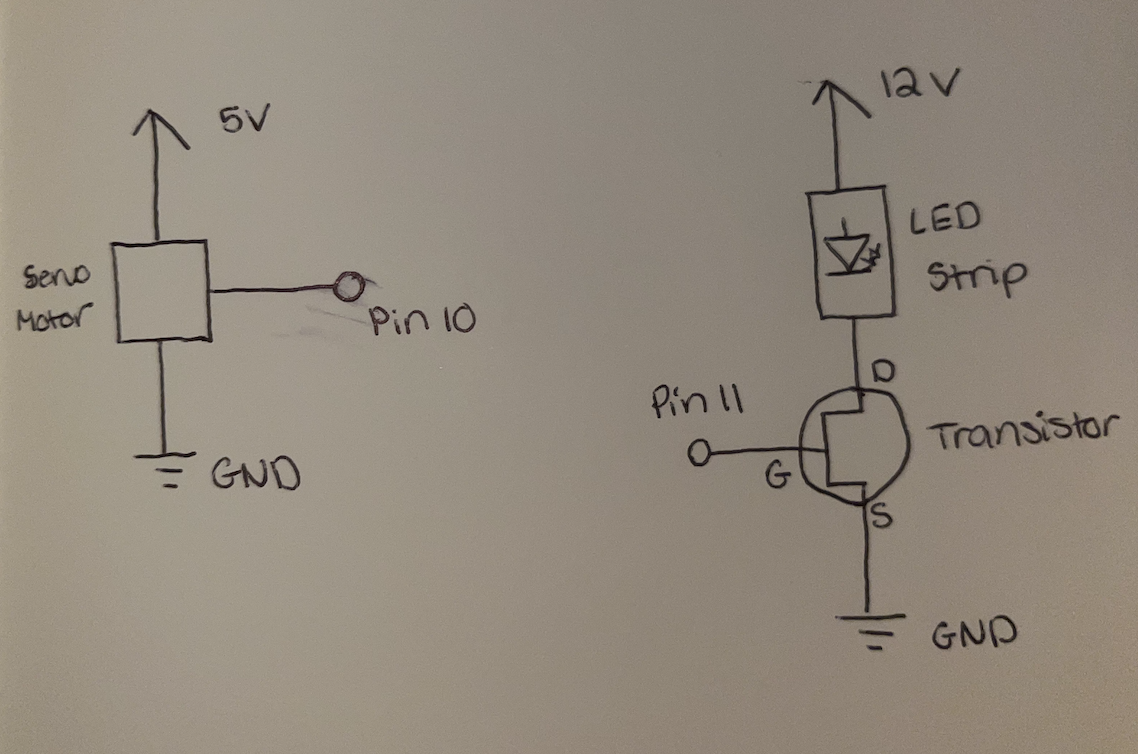 5V
Servo
Motor
Pin 10
GND
12V
LED
Strip
D
Pin 11
G
Transistor
S
GND